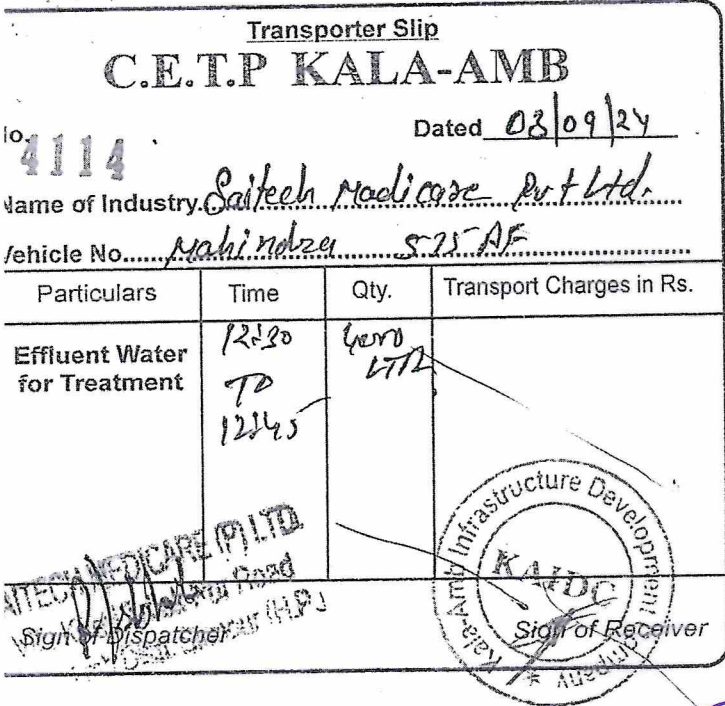 Transporter Slip
C.E.T.P KALA-AMB
No. 4114 Dated 03/09/24
Name of Industry. Saitech Medicare Pvt Ltd.
Vehicle No. Mahindra 575 AF
Particulars Time Qty. Transport Charges in Rs.
Effluent Water for Treatment
12:30
TO
12:45
LTR
SAITECH MEDICARE (P) LTD.
Road
(H.P.)
Sign of Dispatcher
Kala-Amb Infrastructure Development Company
KAIDC
Sign of Receiver